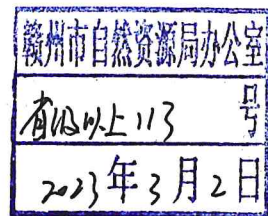 赣州市自然资源局办公室
省级以上113 号
2023年3月2日